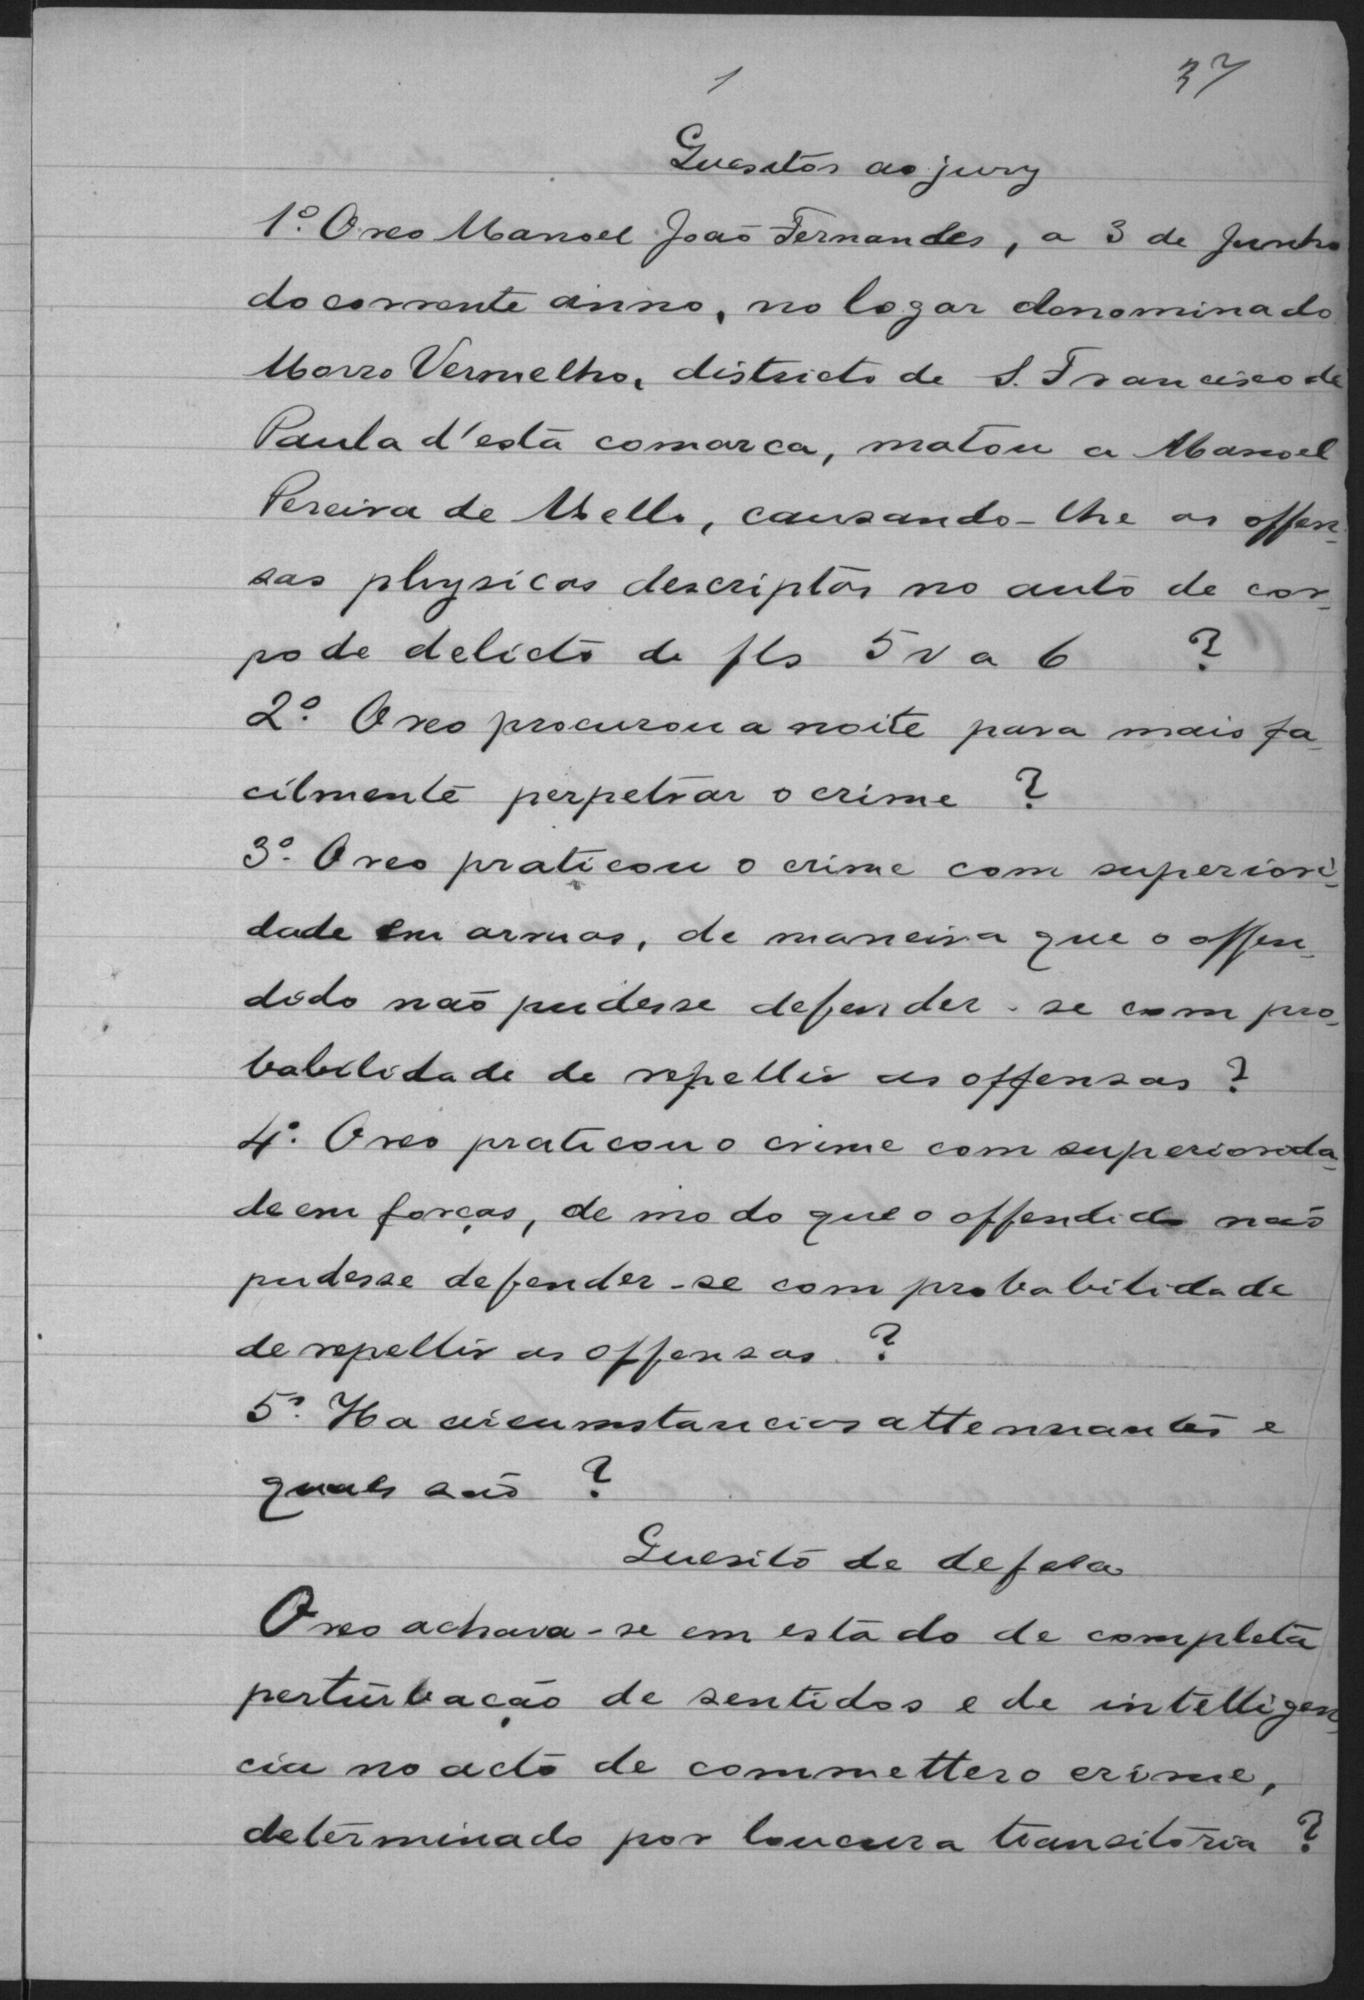 1
37
Quesitos ao jury
1º. O reo Manoel João Fernandes, a 3 de Junho
do corrente anno, no logar denominado
Morro Vermelho, districto de S. Francisco de
Paula d'esta comarca, matou a Manoel
Pereira de Mello, causando-lhe as offen-
sas physicas descriptas no auto de cor-
po de delicto de fls 5 v a 6 ?
2º. O reo procurou a noite para mais fa-
cilmente perpetrar o crime ?
3º. O reo praticou o crime com superiori-
dade em armas, de maneira que o offen-
dido não pudesse defender-se com pro-
babilidade de repellir as offensas ?
4º. O reo praticou o crime com superiorida-
de em forças, de modo que o offendido não
pudesse defender-se com probabilidade
de repellir as offensas ?
5º. Ha circumstancias attenuantes e
quaes são ?
Quesito de defesa
O reo achava-se em estado de completa
perturbação de sentidos e de intelligen-
cia no acto de commetter o crime,
determinado por loucura transitoria ?